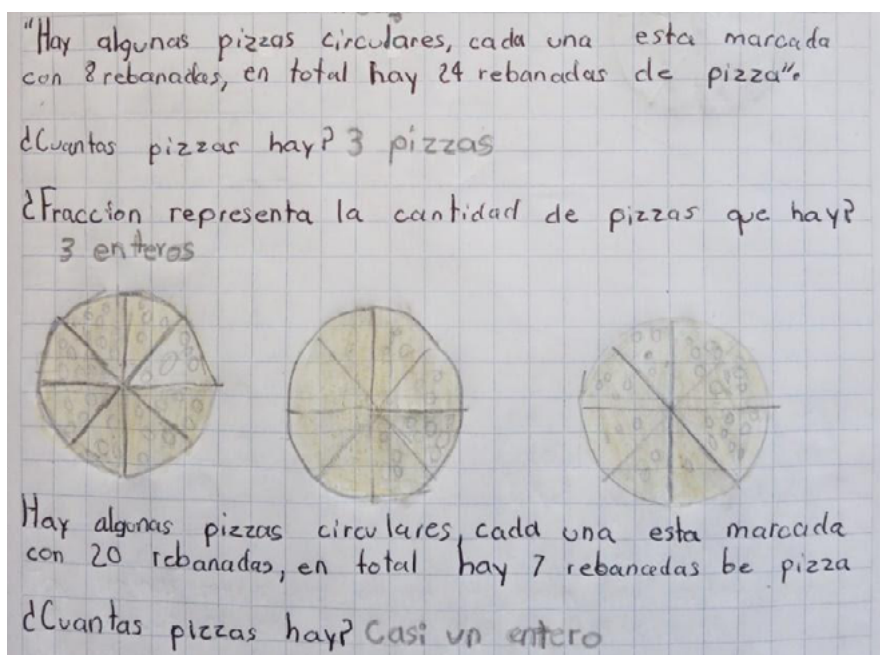 "Hay algunas pizzas circulares, cada una esta marcada
con 8 rebanadas, en total hay 24 rebanadas de pizza".
¿Cuantas pizzas hay? 3 pizzas
¿Fraccion representa la cantidad de pizzas que hay?
3 enteros
Hay algunas pizzas circulares, cada una esta marcada
con 20 rebanadas, en total hay 7 rebancedas be pizza
¿Cuantas pizzas hay? Casi un entero